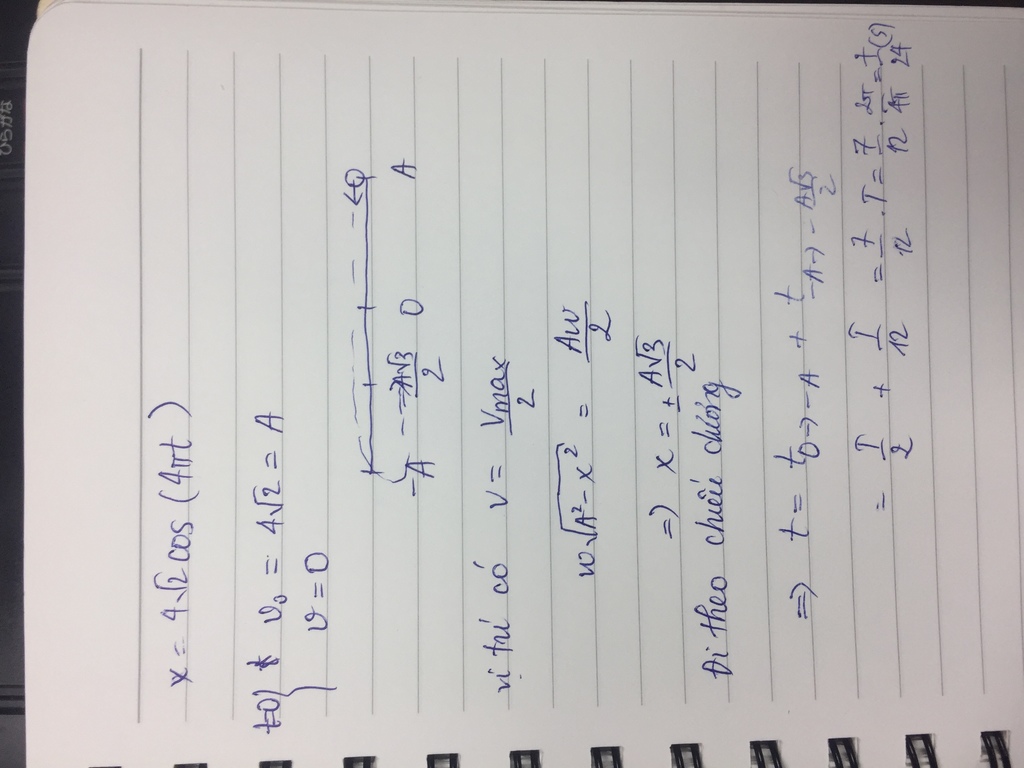 x = 4√2 cos (4πt)
t=0) { v₀ = 4√2 = A
v = 0
-A -A√3/2 O A
vị trí có v = Vmax/2
w√(A² - x²) = Aw/2
=) x = ± A√3/2
Đi theo chiều chường
=) t = t O→ -A + t -A→ -A√3/2
= T/2 + T/12 = 7/12 . T = 7/12 . 2π/4π = 7/24 (s)